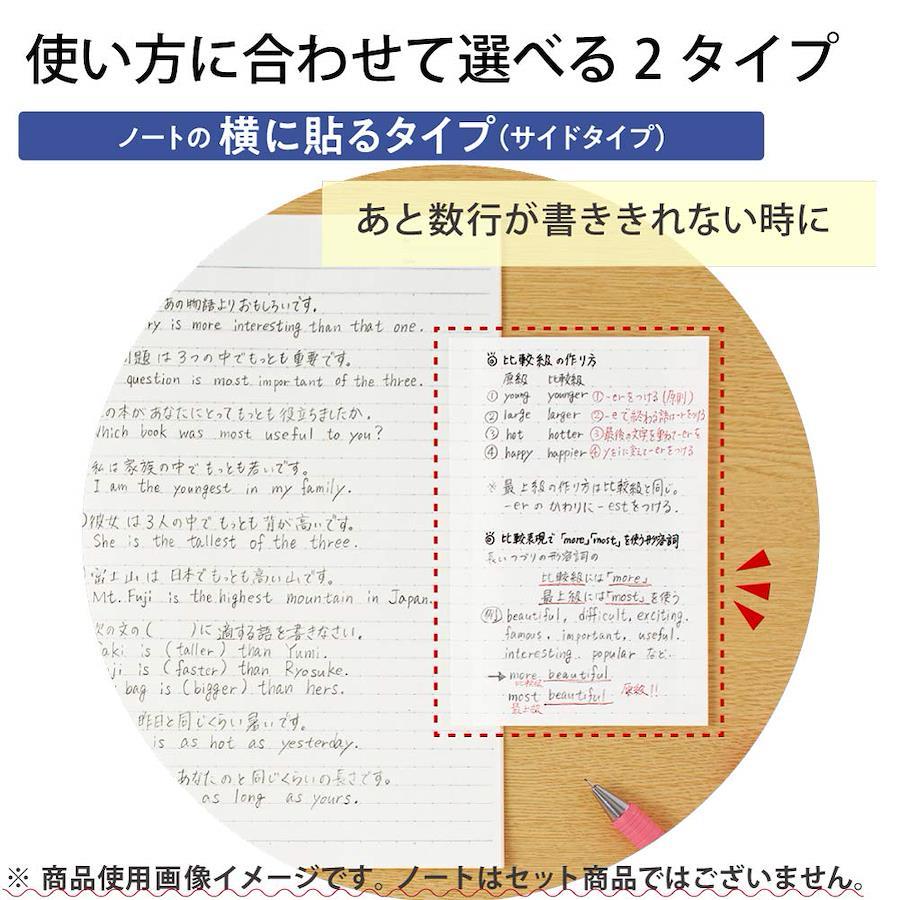 使い方に合わせて選べる2タイプ
ノートの 横に貼るタイプ(サイドタイプ)
あと数行が書ききれない時に
あの物語よりおもしろいです。
ry is more interesting than that one.
題は3つの中でもっとも重要です。
question is most important of the three.
の本があなたにとってもっとも役立ちましたか。
Which book was most useful to you?
私は家族の中でもっとも若いです。
I am the youngest in my family.
彼女は3人の中でもっとも背が高いです。
She is the tallest of the three.
富士山は日本でもっとも高い山です。
Mt. Fuji is the highest mountain in Japan.
次の文の( )に適する語を書きなさい。
aki is (taller) than Yumi.
ji is (faster) than Ryosuke.
bag is (bigger) than hers.
昨日と同じくらい暑いです。
is as hot as yesterday.
あなたのと同じくらいの長さです。
as long as yours.
比較級の作り方
原級 比較級
① young younger ①-erをつける(原則)
② large larger ②-eで終わる語は-rをつける
③ hot hotter ③最後の文字を重ねて-erを
④ happy happier ④yをiに変えて-erをつける
※最上級の作り方は比較級と同じ。
-erのかわりに-estをつける。
比較表現で「more」「most」を使う形容詞
長いつづりの形容詞の
比較級には「more」
最上級には「most」を使う
(例) beautiful, difficult, exciting.
famous, important, useful.
interesting, popular など…
→ more beautiful
比較級
most beautiful 原級!!
最上級
※ 商品使用画像イメージです。ノートはセット商品ではございません。